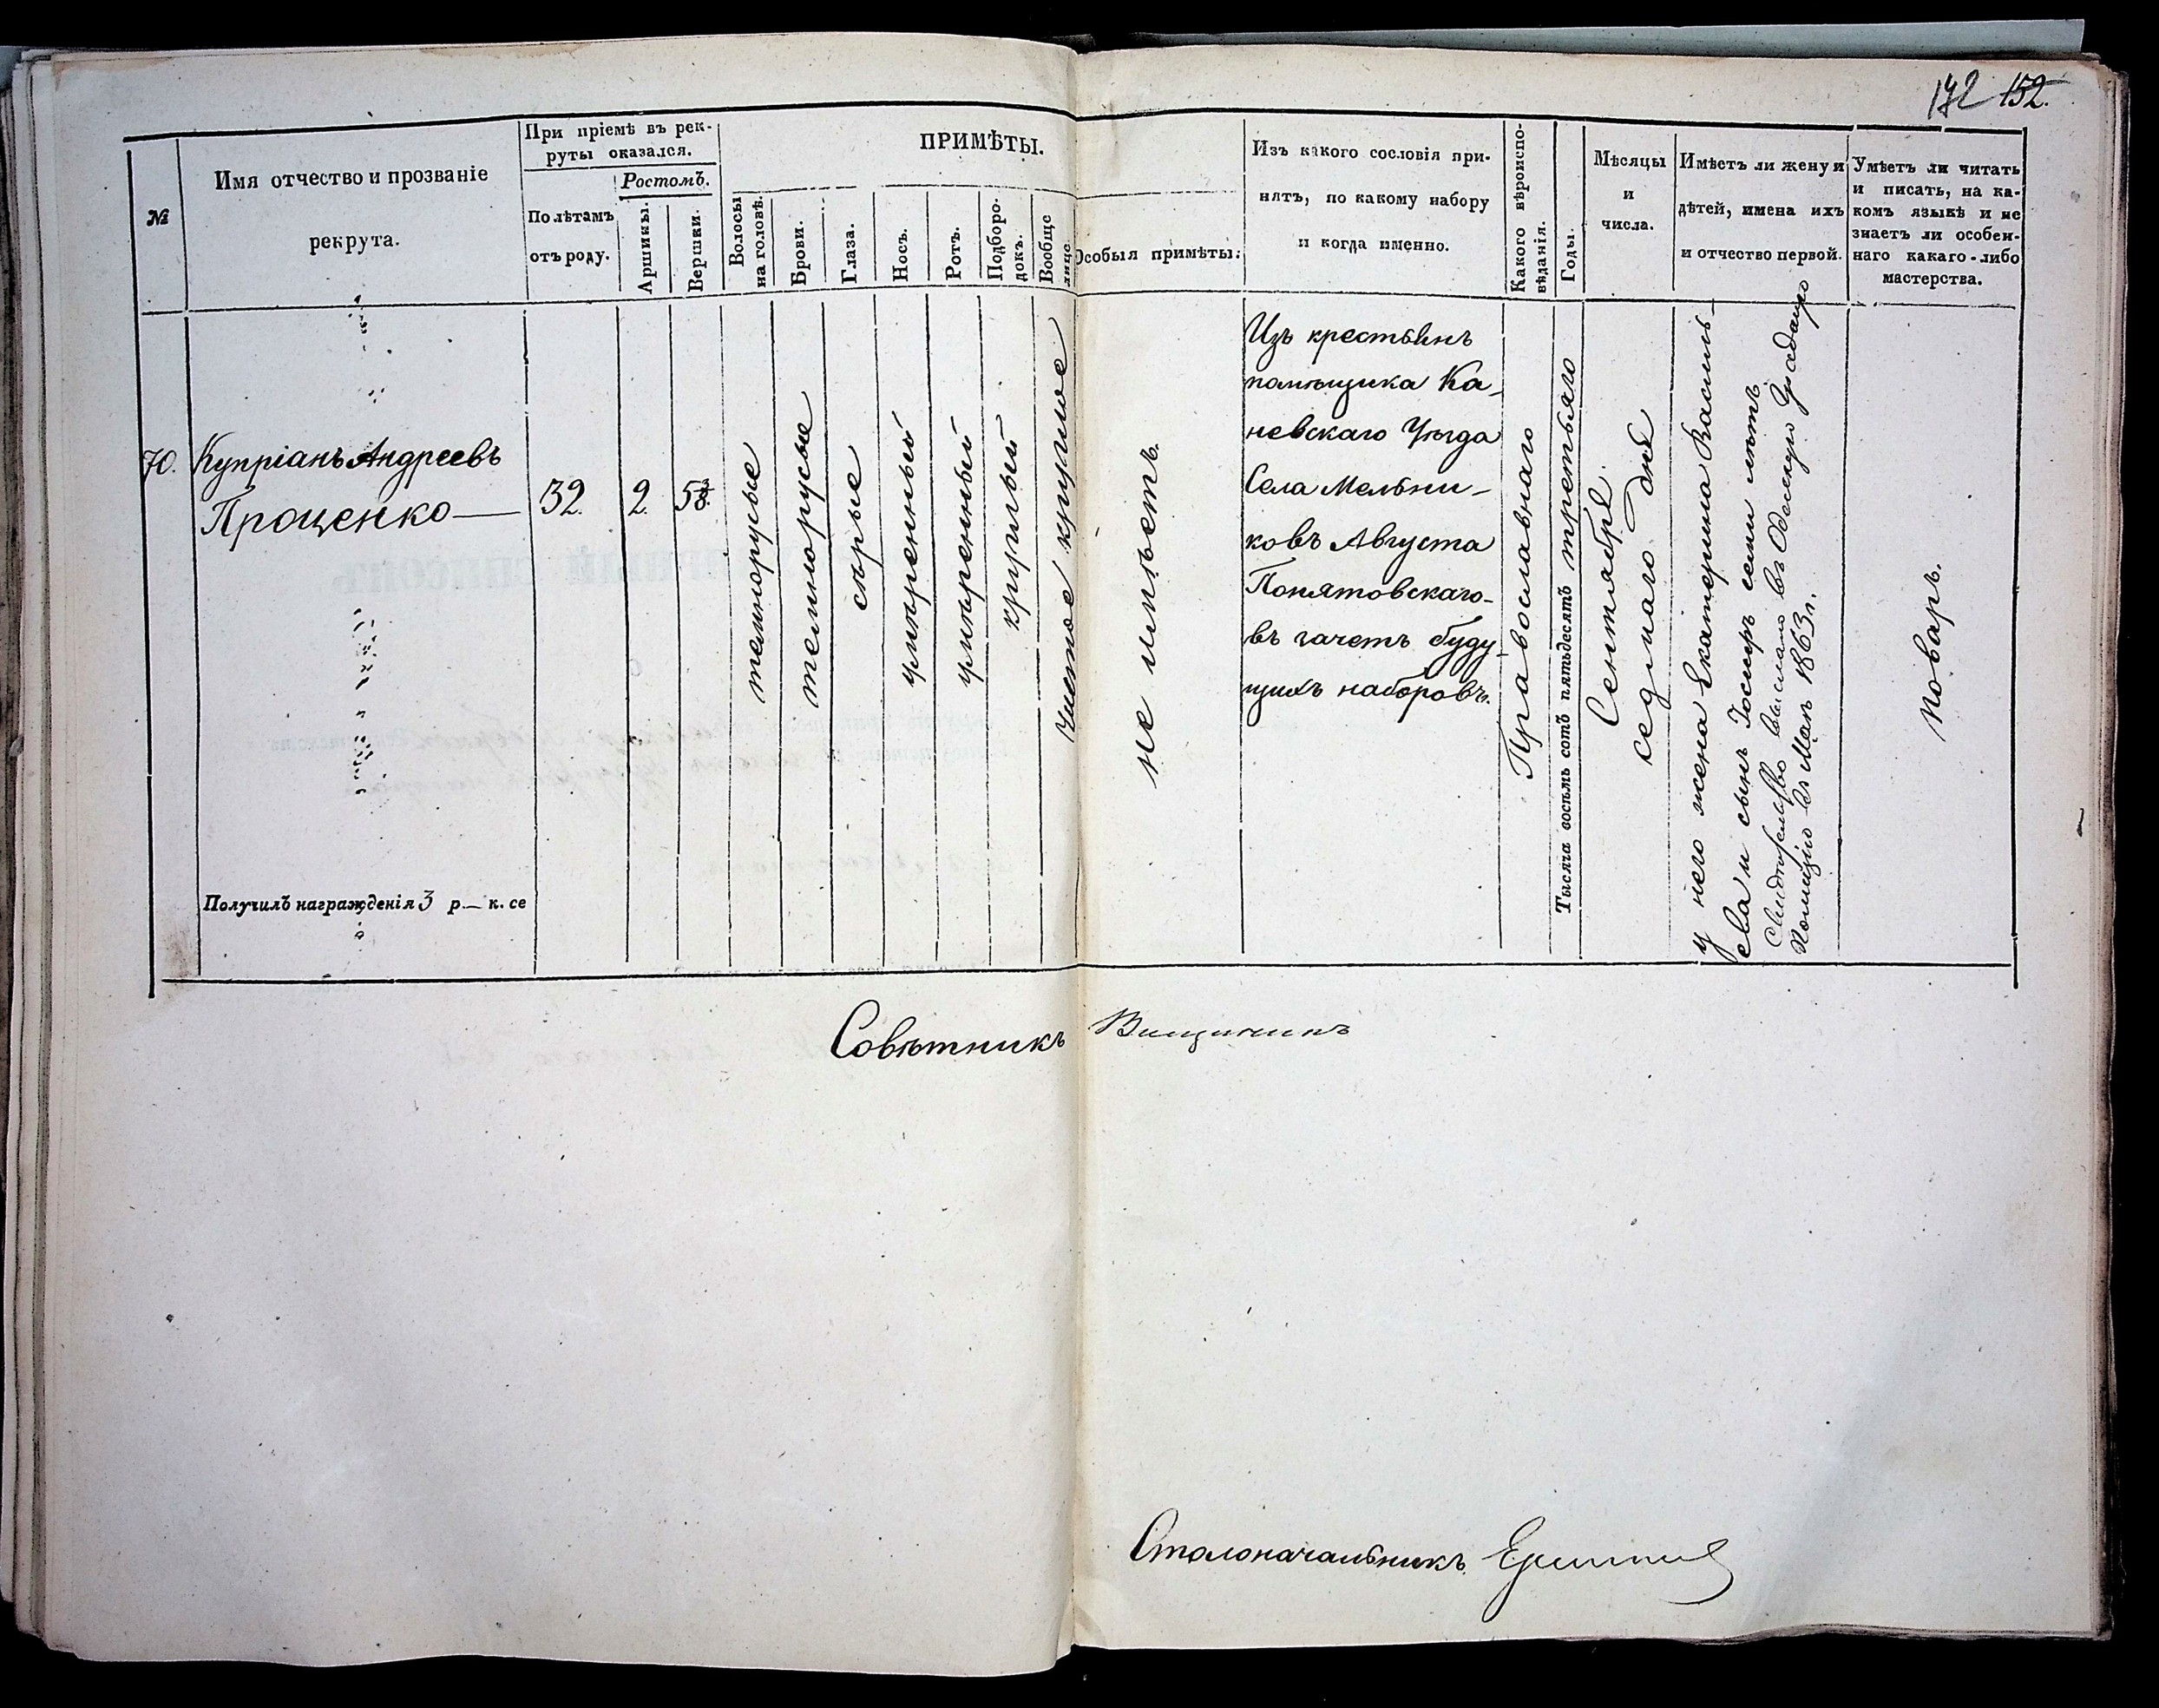 172 152.
№
Имя отчество и прозваніе
рекрута.
При пріемѣ въ рек-
руты оказался.
По лѣтамъ
отъ роду.
Ростомъ.
Аршины.
Вершки.
ПРИМѢТЫ.
Волосы
на головѣ.
Брови.
Глаза.
Носъ.
Ротъ.
Подборо-
докъ.
Вообще
лице.
Особыя примѣты:
Изъ какого сословія при-
нятъ, по какому набору
и когда именно.
Какого вѣроиспо-
вѣданія.
Годы.
Мѣсяцы
и
числа.
Имѣетъ ли жену и
дѣтей, имена ихъ
и отчество первой.
Умѣетъ ли читать
и писать, на ка-
комъ языкѣ и не
знаетъ ли особен-
наго какаго-либо
мастерства.
70.
Купріанъ Андреевъ
Проценко
Получилъ награжденія 3 р. — к. се
32.
2.
5 3/8.
темнорусые
темнорусые
сѣрые
умѣренный
умѣренный
круглый
Чистое круглое
не имѣетъ.
Изъ крестьянъ
помѣщика Ка-
невскаго Уѣзда
Села Мельни-
ковъ Августа
Понятовскаго
въ зачетъ буду-
щихъ наборовъ.
Православнаго
Тысяча восемь сотъ пятьдесятъ третьяго
Сентября
седмаго дня
у него жена Екатерина Василь-
ева и сынъ Іосифъ семи лѣтъ
Свидѣтельство выслано въ Одесскую Градскую
Полицію въ Маѣ 1863 г.
поваръ.
Совѣтникъ
Столоначальникъ